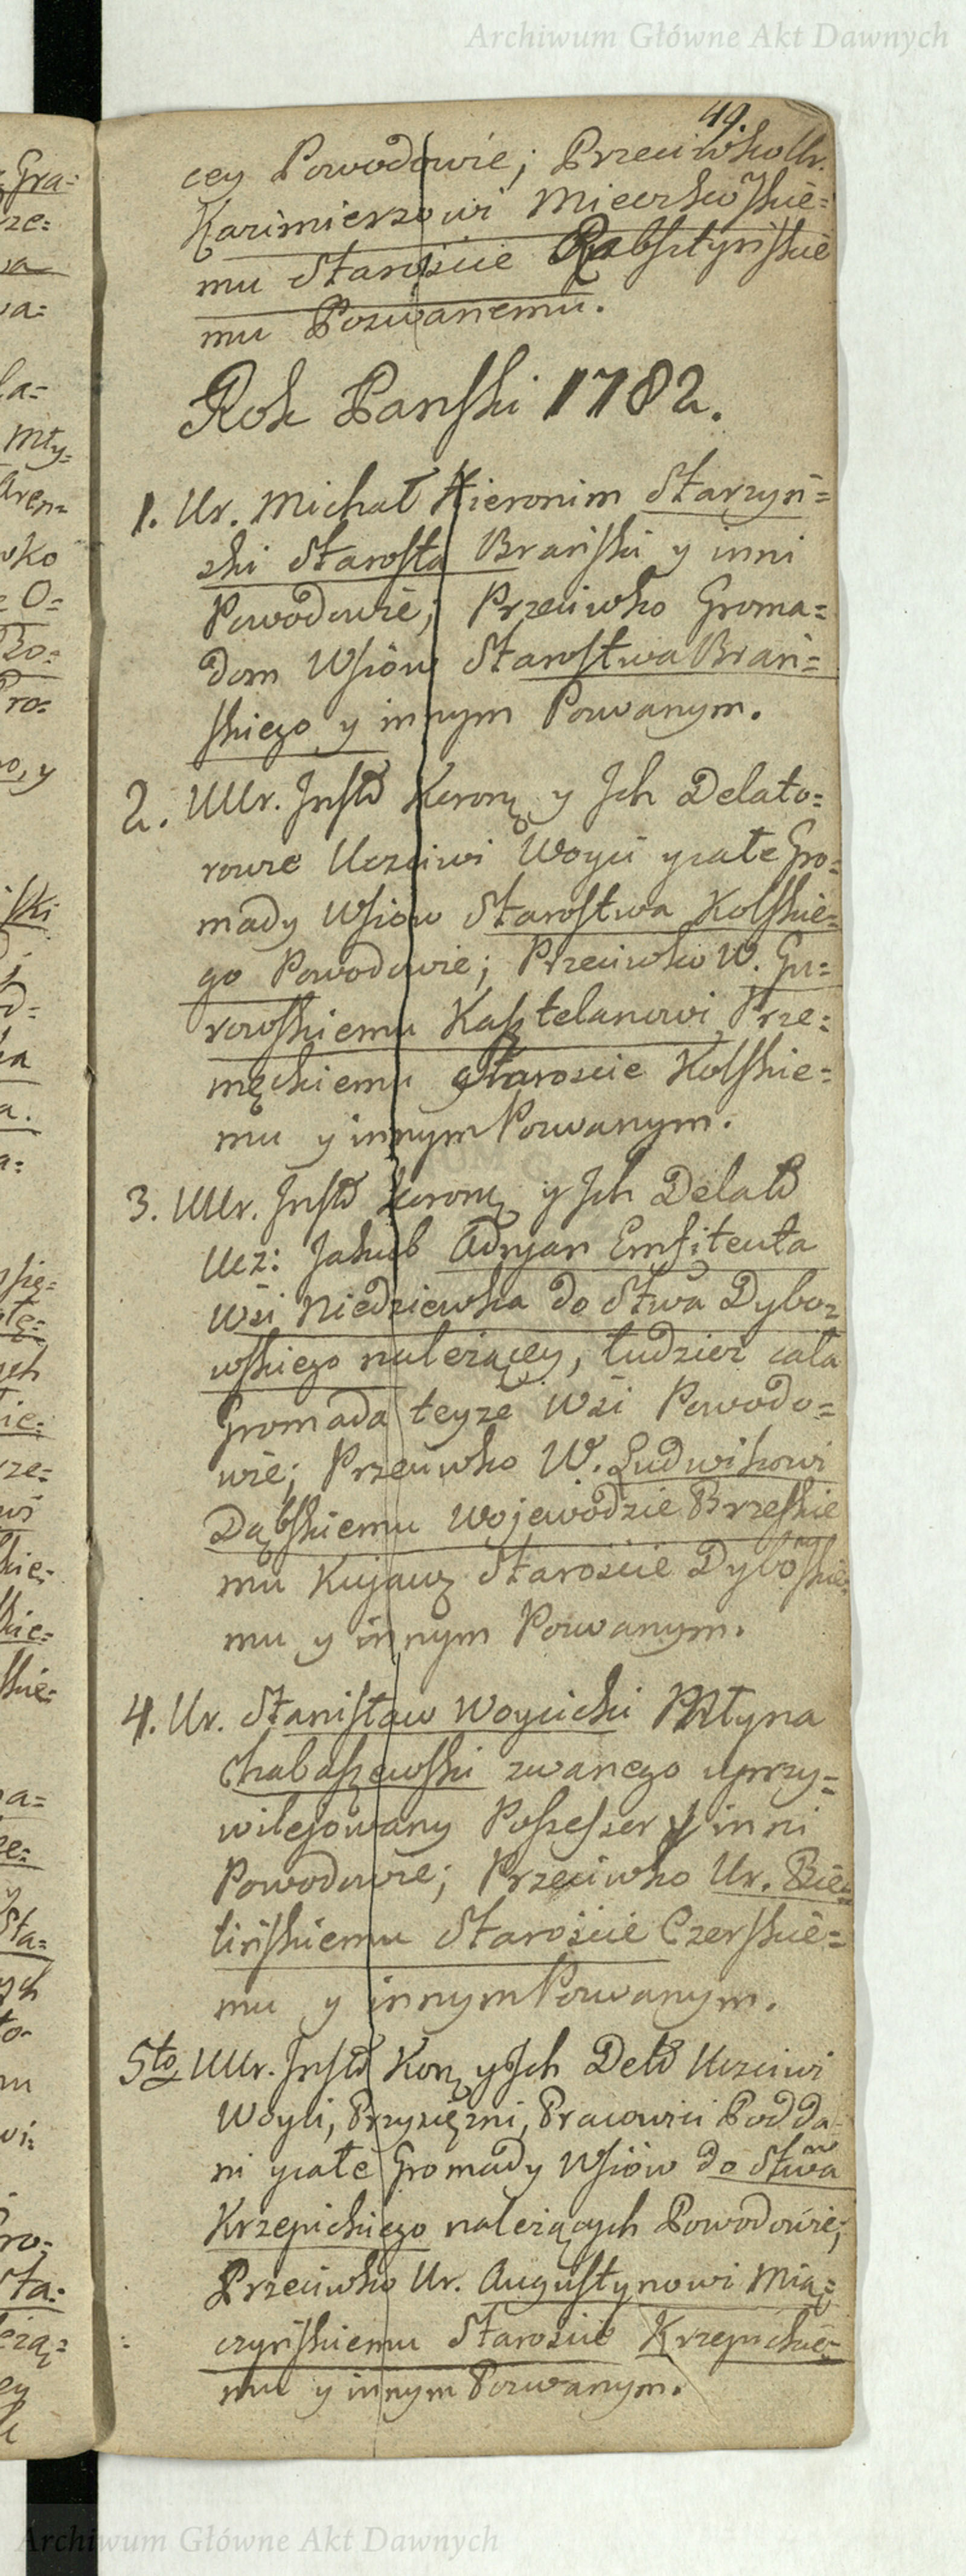 Archiwum Główne Akt Dawnych
49.
cey Powodowie; Przeciwko Ur.
Kazimierzowi Mieerkowskie=
mu Staroście Rabsztyńskie
mu Pozwanemu.
Rok Pański 1782.
1. Ur. Michał Hieronim Starzyń=
ski Starosta Brański y inni
Powodowie; Przeciwko Groma=
dom Wsiów Starostwa Brań=
skiego y innym Pozwanym.
2. UUr. Insttt Korony y Ich Delato=
rowie Uczciwi Woyci y całe Gro=
mady Wsiów Starostwa Kolskie=
go Powodowie; Przeciwko W. Gu=
rowskiemu Kasztelanowi Prze=
męckiemu Staroscie Kolskie=
mu y innym Pozwanym.
3. UUr. Insttt Korony y Ich Delatt
Ucz: Jakub Adryan Emfiteuta
Wsi Niedziewka do Stwa Dybo=
wskiego należącey, tudzież cała
Gromada teyże Wsi Powodo=
wie; Przeciwko W. Ludwikowi
Dąbskiemu Wojewodzie Brzeskie
mu Kujaw. Staroście Dybowskie=
mu y innym Pozwanym.
4. Ur. Stanisław Woycicki Młyna
Chabaszewski zwanego uprzy=
wilejowany Possessor y inni
Powodowie; Przeciwko Ur. Bie=
lińskiemu Staroście Czerskie=
mu y innym Pozwanym.
5to UUr. Insttt Kor. y Ich Delt Uczciwi
Woyci, Przysiężni, Pracowici Podda=
ni y całe Gromady Wsiów do Stwa
Krzepickiego należących Powodowie;
Przeciwko Ur. Augustynowi Mią=
czyńskiemu Staroście Krzepickie=
mu y innym Pozwanym.
Archiwum Główne Akt Dawnych